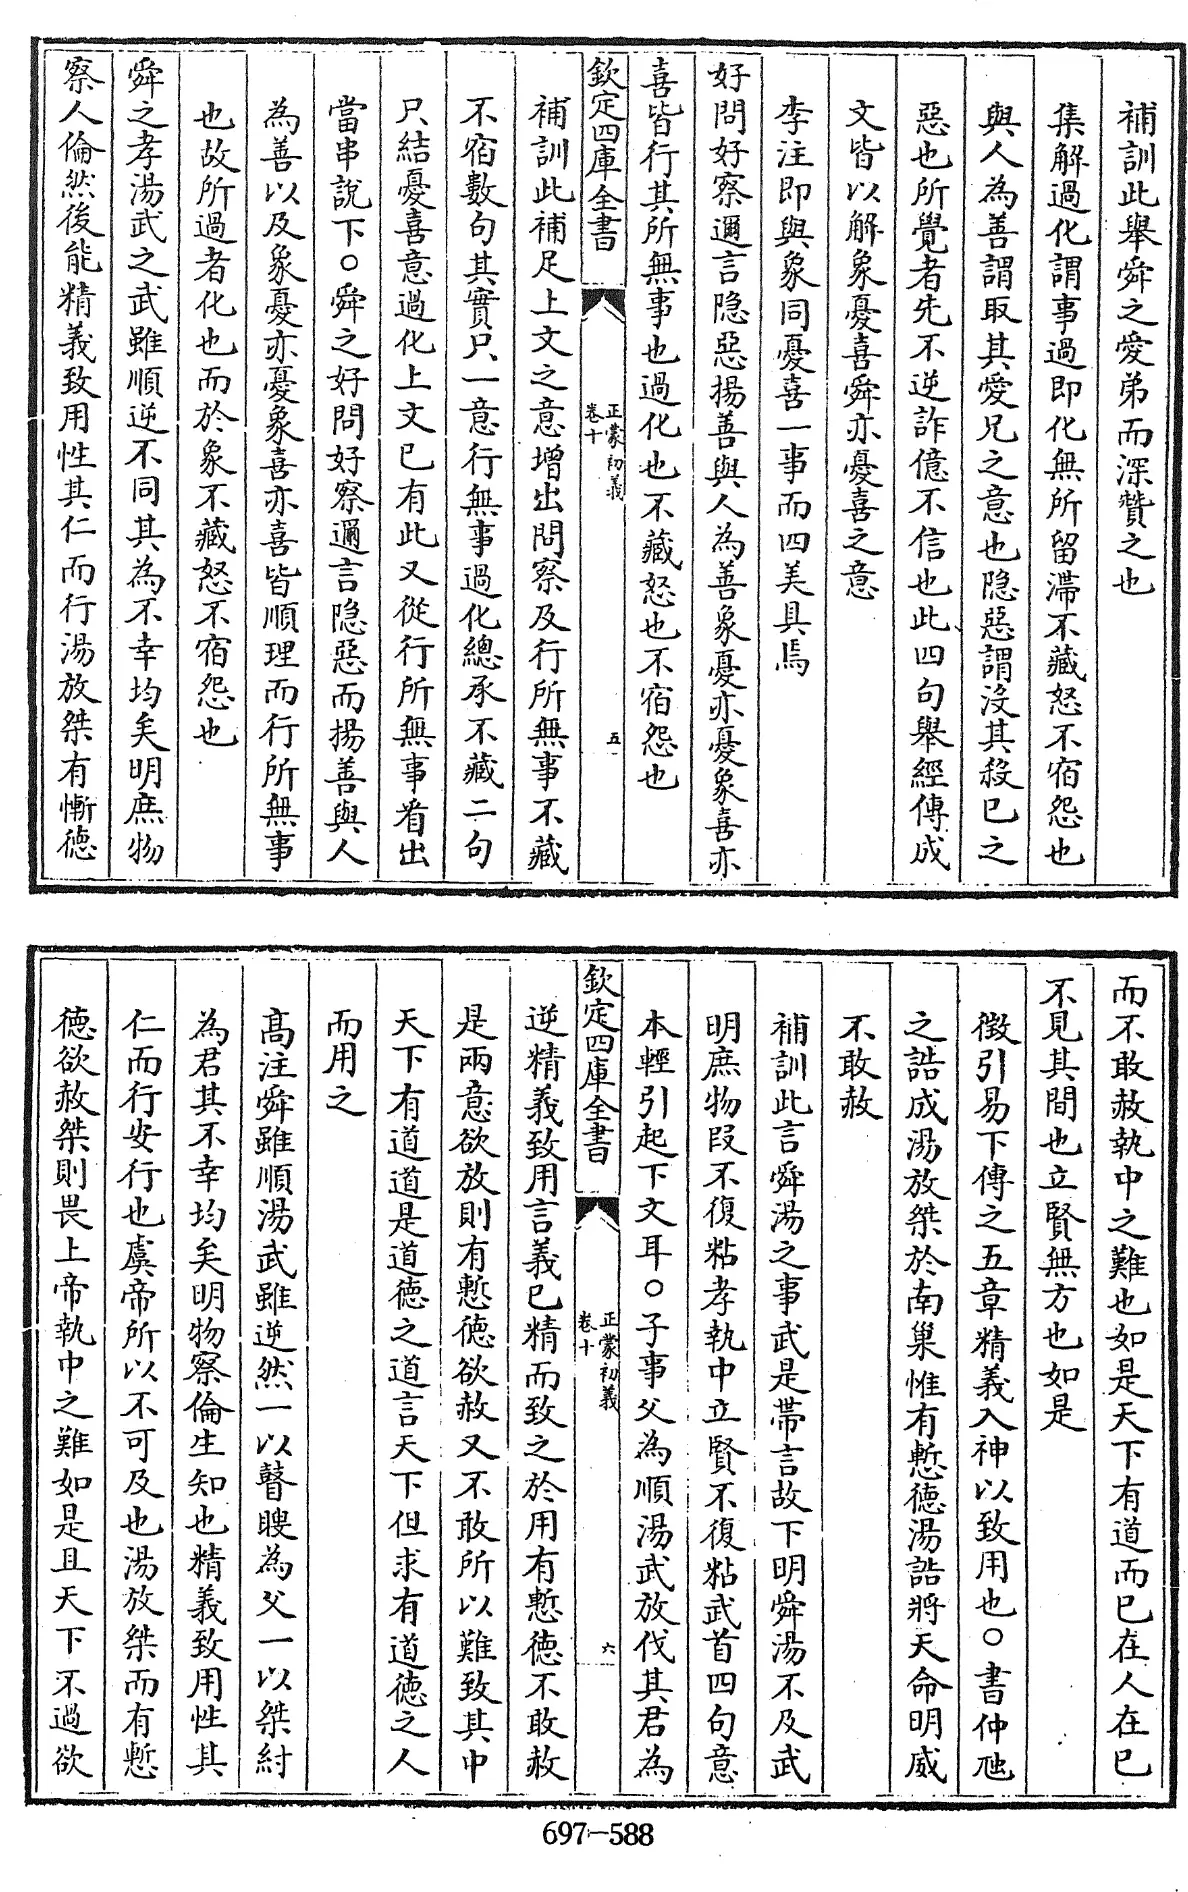 補訓此舉舜之愛弟而深贊之也
集解過化謂事過即化無所留滯不藏怒不宿怨也
與人為善謂取其愛兄之意也隐惡謂沒其殺已之
惡也所覺者先不逆詐億不信也此四句舉經傳成
文皆以解象憂喜舜亦憂喜之意
李注即與象同憂喜一事而四美具焉
好問好察邇言隐惡揚善與人為善象憂亦憂象喜亦
喜皆行其所無事也過化也不藏怒也不宿怨也
欽定四庫全書
正蒙初義
卷十
五
補訓此補足上文之意增出問察及行所無事不藏
不宿數句其實只一意行無事過化總承不藏二句
只結憂喜意過化上文已有此又從行所無事看出
當串說下○舜之好問好察邇言隐惡而揚善與人
為善以及象憂亦憂象喜亦喜皆順理而行所無事
也故所過者化也而於象不藏怒不宿怨也
舜之孝湯武之武雖順逆不同其為不幸均矣明庶物
察人倫然後能精義致用性其仁而行湯放桀有慚德
而不敢赦執中之難也如是天下有道而已在人在已
不見其間也立賢無方也如是
徵引易下傳之五章精義入神以致用也○書仲虺
之誥成湯放桀於南巢惟有慙德湯誥將天命明威
不敢赦
補訓此言舜湯之事武是帶言故下明舜湯不及武
明庶物段不復粘孝執中立賢不復粘武首四句意
本輕引起下文耳○子事父為順湯武放伐其君為
欽定四庫全書
正蒙初義
卷十
六
逆精義致用言義已精而致之於用有慙德不敢赦
是兩意欲放則有慙德欲赦又不敢所以難致其中
天下有道道是道德之道言天下但求有道德之人
而用之
高注舜雖順湯武雖逆然一以瞽瞍為父一以桀紂
為君其不幸均矣明物察倫生知也精義致用性其
仁而行安行也虞帝所以不可及也湯放桀而有慙
德欲赦桀則畏上帝執中之難如是且天下不過欲
697-588